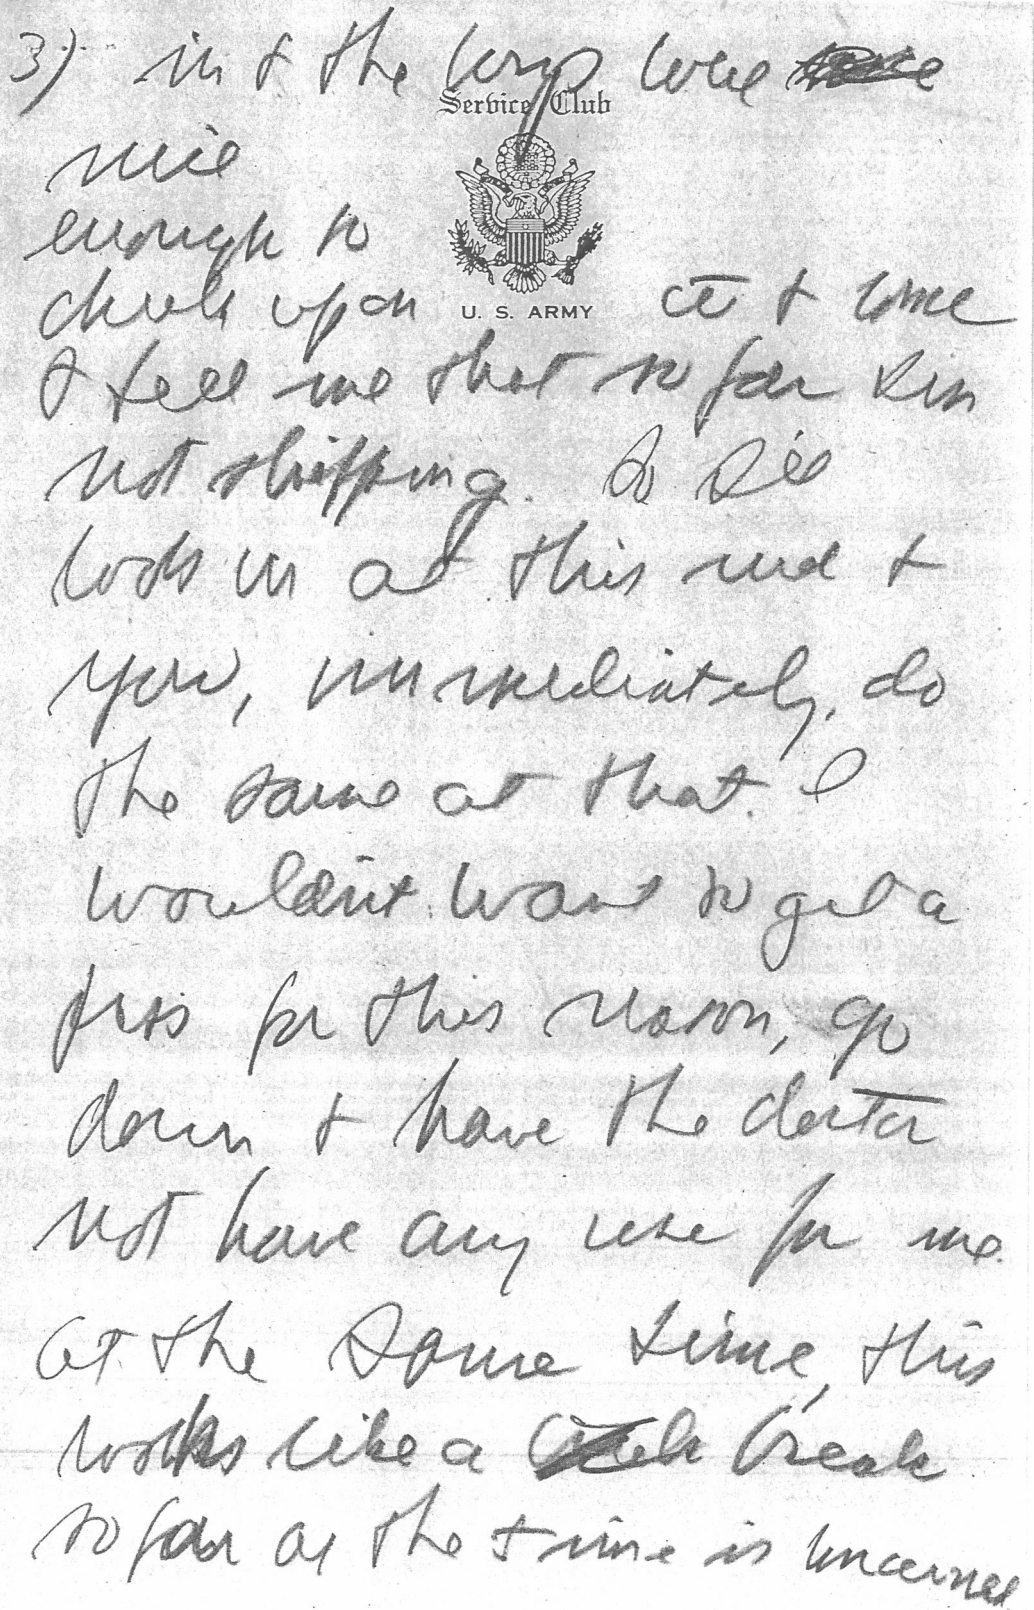 3) in & the boys were
Service Club
nice
enough to
check upon it & come
U. S. ARMY
& tell me that so far I'm
not shipping. So I'll
look in at this end &
you, immediately, do
the same at that. I
wouldn't want to get a
pass for this reason, go
down & have the doctor
not have any use for me.
At the same time, this
looks like a break
so far as the time is concerned